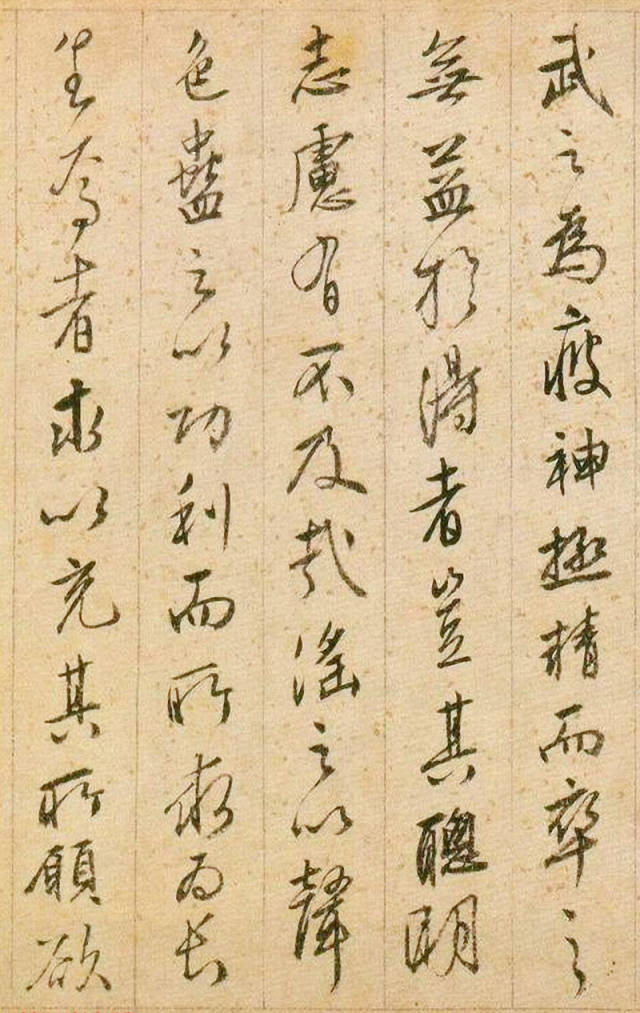 武之為疲神極精而卒之
無益於得者豈其聰明
志慮有不及哉淫之以聲
色蠱之以功利而所求為長
生焉者求以充其所願欲